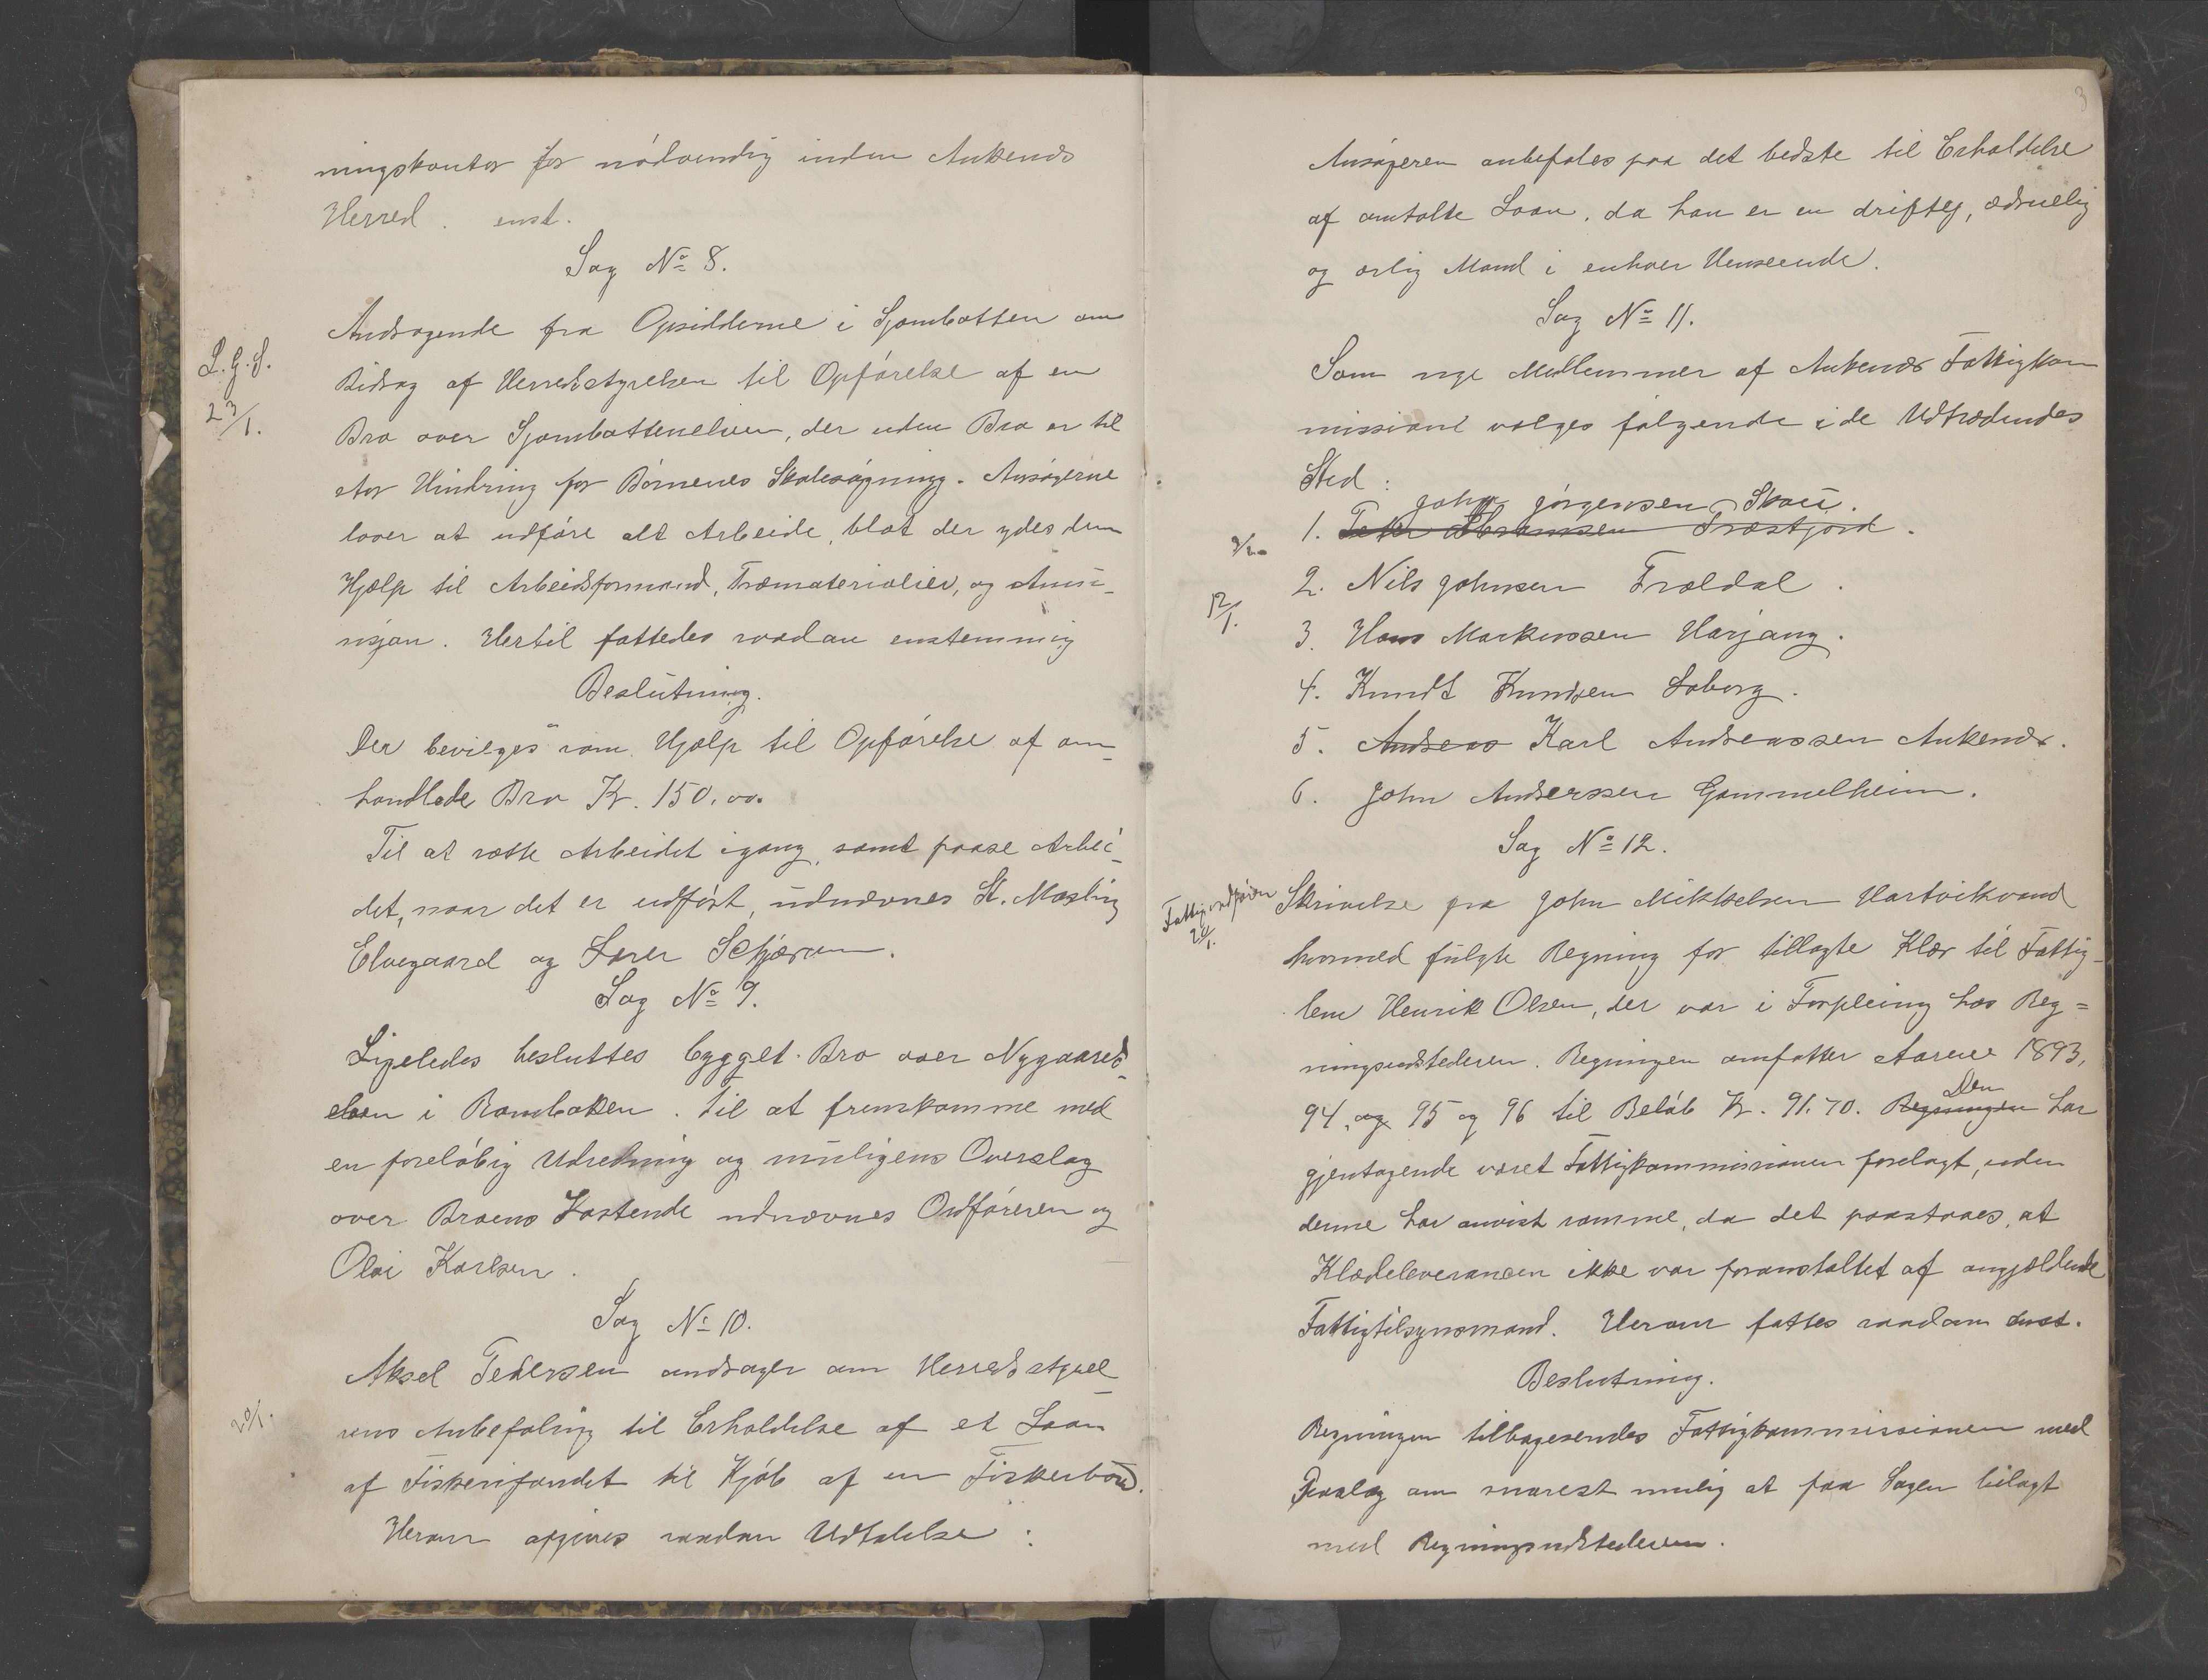 ningskontor for nödvendig inden Ankenes
Herred. enst.
Sag No 8.
Andragende fra Opsidderne i Sjombotten om
L.G.S.
23/1.
Bidrag af Herredsstyrelsen til Opförelse af en
Bro over Sjombottenelven, der uden Bro er til
stor Hindring for Börnenes Skolesögning. Ansögerne
lover at udföre alt Arbeide, blot der ydes dem
Hjælp til Arbeidsformand, Træmaterialier, og Amu-
nisjon. Hertil fattedes saadan enstemmig
Beslutning.
Der bevilges som Hjælp til Opförelse af om-
handlede Bro Kr. 150,00.
Til at sætte Arbeidet igang, samt paase Arbei-
det, naar det er udfört, udnævnes St. Mosling
Elvegaard og Lærer Schjærven.
Sag No 9.
Ligeledes besluttes bygget Bro over Nygaards-
elven i Rombakken. Til at fremskomme med
en forelöbig Udredning og muligens Overslag
over Broens Kostende udnævnes Ordföreren og
Olai Karlsen.
Sag No 10.
Aksel Pedersen andrager om Herredsstyrel-
20/1.
sens Anbefaling til Erholdelse af et Laan
af Fiskerifondet til Kjöb af en Fiskerbaad.
Herom afgives saadan Udtalelse:
3
Ansögeren anbefales paa det bedste til Erholdelse
af omtalte Laan, da han er en driftig, ædruelig
og ærlig Mand i enhver Henseende.
Sag No 11.
Som nye Medlemmer af Ankenes Fattigkom
missiont vælges fölgende i de Udtrædendes
Sted:
John Jörgensen Skoii.
1. Peter Abramsen Træstjord.
2. Nils Johnsen Frældal.
12/1.
3. Hans Markussen Harjang.
4. Knudt Knudsen Soberg.
5. Andreas Karl Andreassen Ankenes.
6. John Anderssen Gammelheim.
Sag No 12.
Skrivelse fra John Mikkelsen Hartvikvand
hvormed fulgte Regning for tillagte Klær til Fattig-
lem Henrik Olsen, der var i Forpleining hos Reg=
ningsudstederen. Regningen omfatter Aarene 1893,
94, og 95 og 96 til Belöb Kr. 91.70. Regningen Den har
gjentagende været Fattigkommissionen forelagt, uden
denne har anvist samme, da det paastaaes, at
Klædeleverancen ikke var foranstaltet af angjældende
Fattigtilsynsmand. Herom fattes saadan enst.
Beslutning.
Regningen tilbagesendes Fattigkommissionen med
Paalæg om snarest mulig at faa Sagen bilagt
med Regningsudstederen.